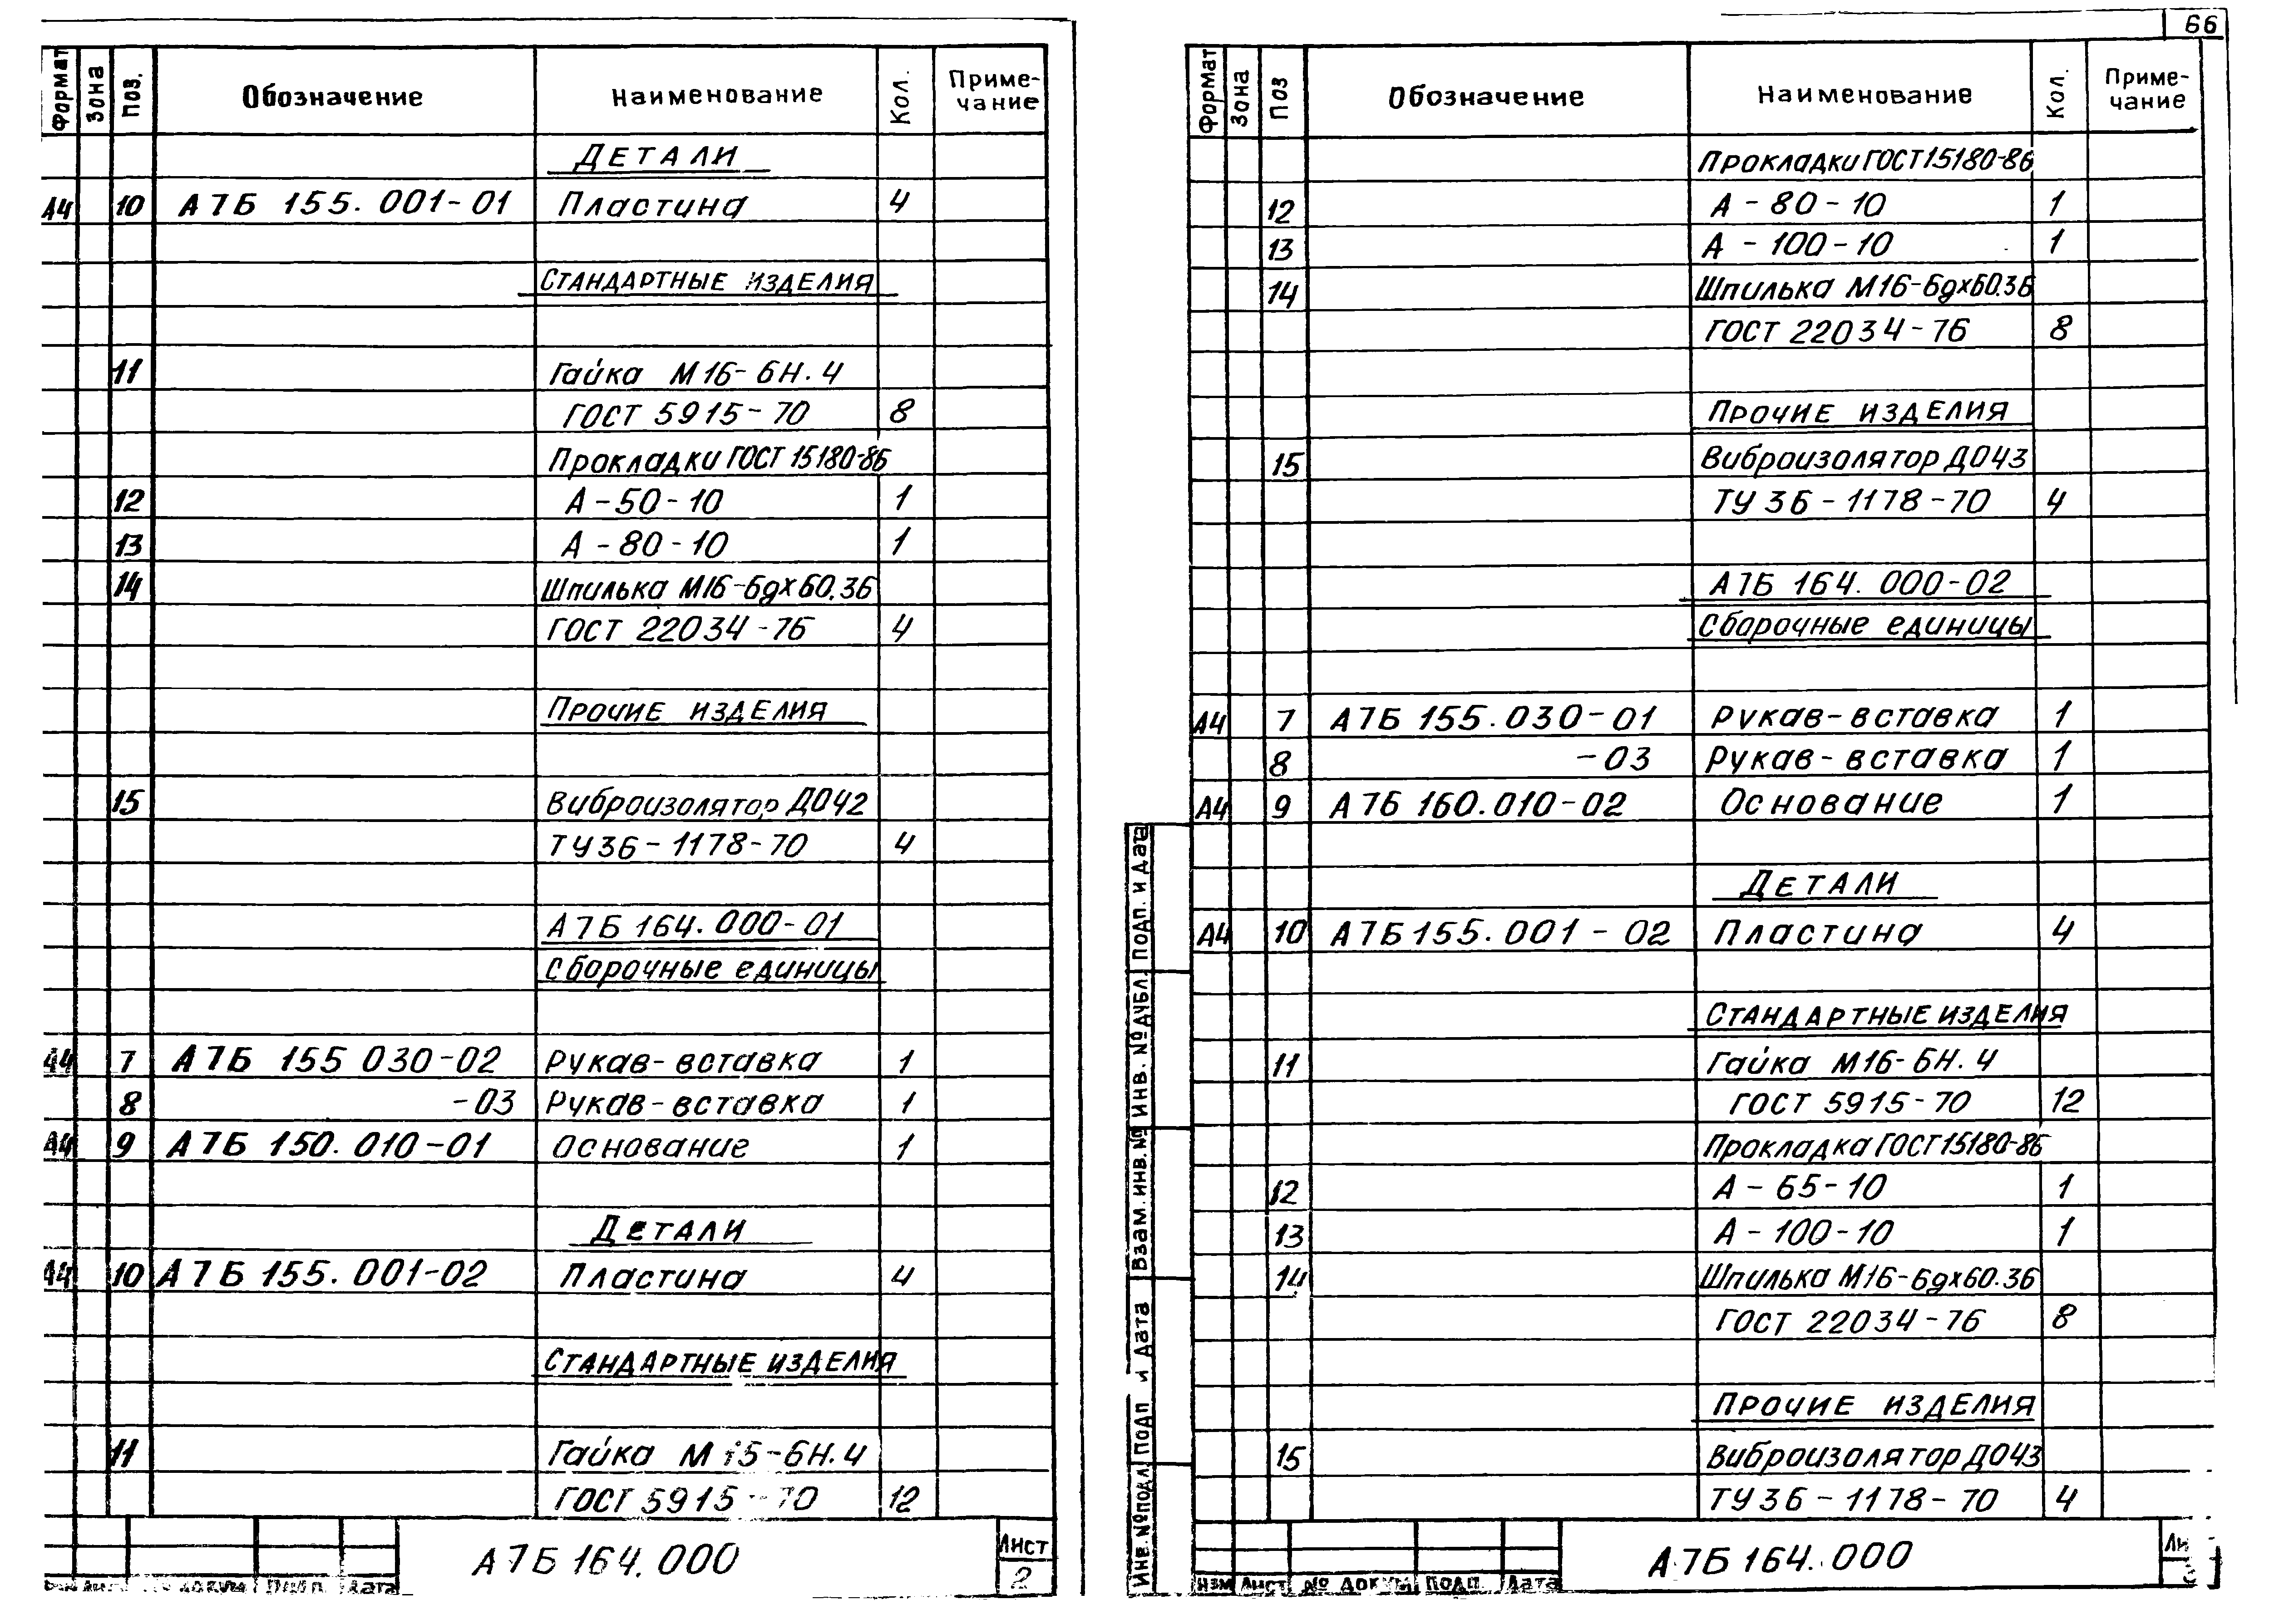 66
Формат Зона Поз. Обозначение Наименование Кол. Приме-
чание
Детали
А4 10 А7Б 155.001-01 Пластина 4
Стандартные изделия
11 Гайка М16-6Н.4
ГОСТ 5915-70 8
Прокладки ГОСТ 15180-86
12 А-50-10 1
13 А-80-10 1
14 Шпилька М16-6gх60.36
ГОСТ 22034-76 4
Прочие изделия
15 Виброизолятор ДО42
ТУ36-1178-70 4
А7Б 164.000-01
Сборочные единицы
А4 7 А7Б 155 030-02 Рукав-вставка 1
8 -03 Рукав-вставка 1
А4 9 А7Б 150.010-01 Основание 1
Детали
А4 10 А7Б 155.001-02 Пластина 4
Стандартные изделия
11 Гайка М16-6Н.4
ГОСТ 5915-70 12
А7Б 164.000
Лист
2
№ докум Подп. Дата
Формат Зона Поз Обозначение Наименование Кол. Приме-
чание
Прокладки ГОСТ 15180-86
12 А-80-10 1
13 А-100-10 1
14 Шпилька М16-6gх60.36
ГОСТ 22034-76 8
Прочие изделия
15 Виброизолятор ДО43
ТУ 36-1178-70 4
А7Б 164.000-02
Сборочные единицы
А4 7 А7Б 155.030-01 Рукав-вставка 1
8 -03 Рукав-вставка 1
А4 9 А7Б 160.010-02 Основание 1
Детали
А4 10 А7Б 155.001-02 Пластина 4
Стандартные изделия
11 Гайка М16-6Н.4
ГОСТ 5915-70 12
Прокладка ГОСТ 15180-86
12 А-65-10 1
13 А-100-10 1
14 Шпилька М16-6gх60.36
ГОСТ 22034-76 8
Прочие изделия
15 Виброизолятор ДО43
ТУ36-1178-70 4
Инв. № подл Подп и дата Взам. инв. № Инв. № дубл. Подп. и дата
А7Б 164.000
Изм Лист № докум Подп. Дата